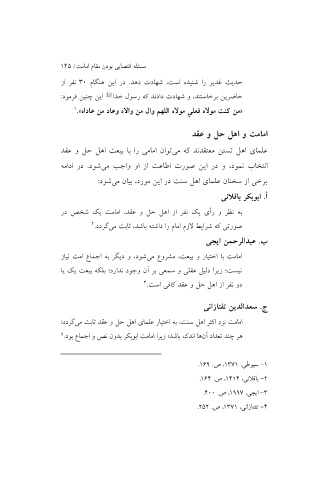 مسئله اقتضایی بودن مقام امامت / ۱۴۵
حدیث غدیر را شنیده است، شهادت دهد. در این هنگام ۳۰ نفر از
حاضرین برخاستند، و شهادت دادند که رسول خداﷺ این چنین فرمود:
«من کنت مولاه فعلي مولاه اللهم وال من والاه وعاد من عاداه».۱
امامت و اهل حل و عقد
علمای اهل تسنن معتقدند که می‌توان امامی را با بیعت اهل حل و عقد
انتخاب نمود، و در این صورت اطاعت از او واجب می‌شود. در ادامه
برخی از سخنان علمای اهل سنت در این مورد، بیان می‌شود:
أ. ابوبکر باقلانی
به نظر و رأی یک نفر از اهل حل و عقد، امامت یک شخص در
صورتی که شرایط لازم امام را داشته باشد، ثابت می‌گردد.۲
ب. عبدالرحمن ایجی
امامت با اختیار و بیعت، مشروع می‌شود، و دیگر به اجماع امت نیاز
نیست؛ زیرا دلیل عقلی و سمعی بر آن وجود ندارد؛ بلکه بیعت یک یا
دو نفر از اهل حل و عقد کافی است.۳
ج. سعدالدین تفتازانی
امامت نزد اکثر اهل سنت، به اختیار علمای اهل حل و عقد ثابت می‌گردد؛
هر چند تعداد آن‌ها اندک باشد؛ زیرا امامت ابوبکر بدون نص و اجماع بود.۴
۱– سیوطی، ۱۳۷۱، ص. ۱۶۹.
۲– باقلانی، ۱۴۱۴، ص. ۱۶۴.
۳– ایجی، ۱۹۹۷، ص. ۴۰۰.
۴– تفتازانی، ۱۳۷۱، ص. ۲۵۲.